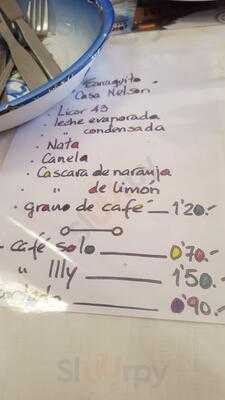 Barraquito.
Casa Nelson
· Licor 43
· leche evaporada
" condensada
· Nata
· Canela
· Cascara de naranja
· " de limón
· grano de café — 1'20.-
- café solo — 0'70.-
" Illy — 1'50.-
— 0'90.-
Sluurpy